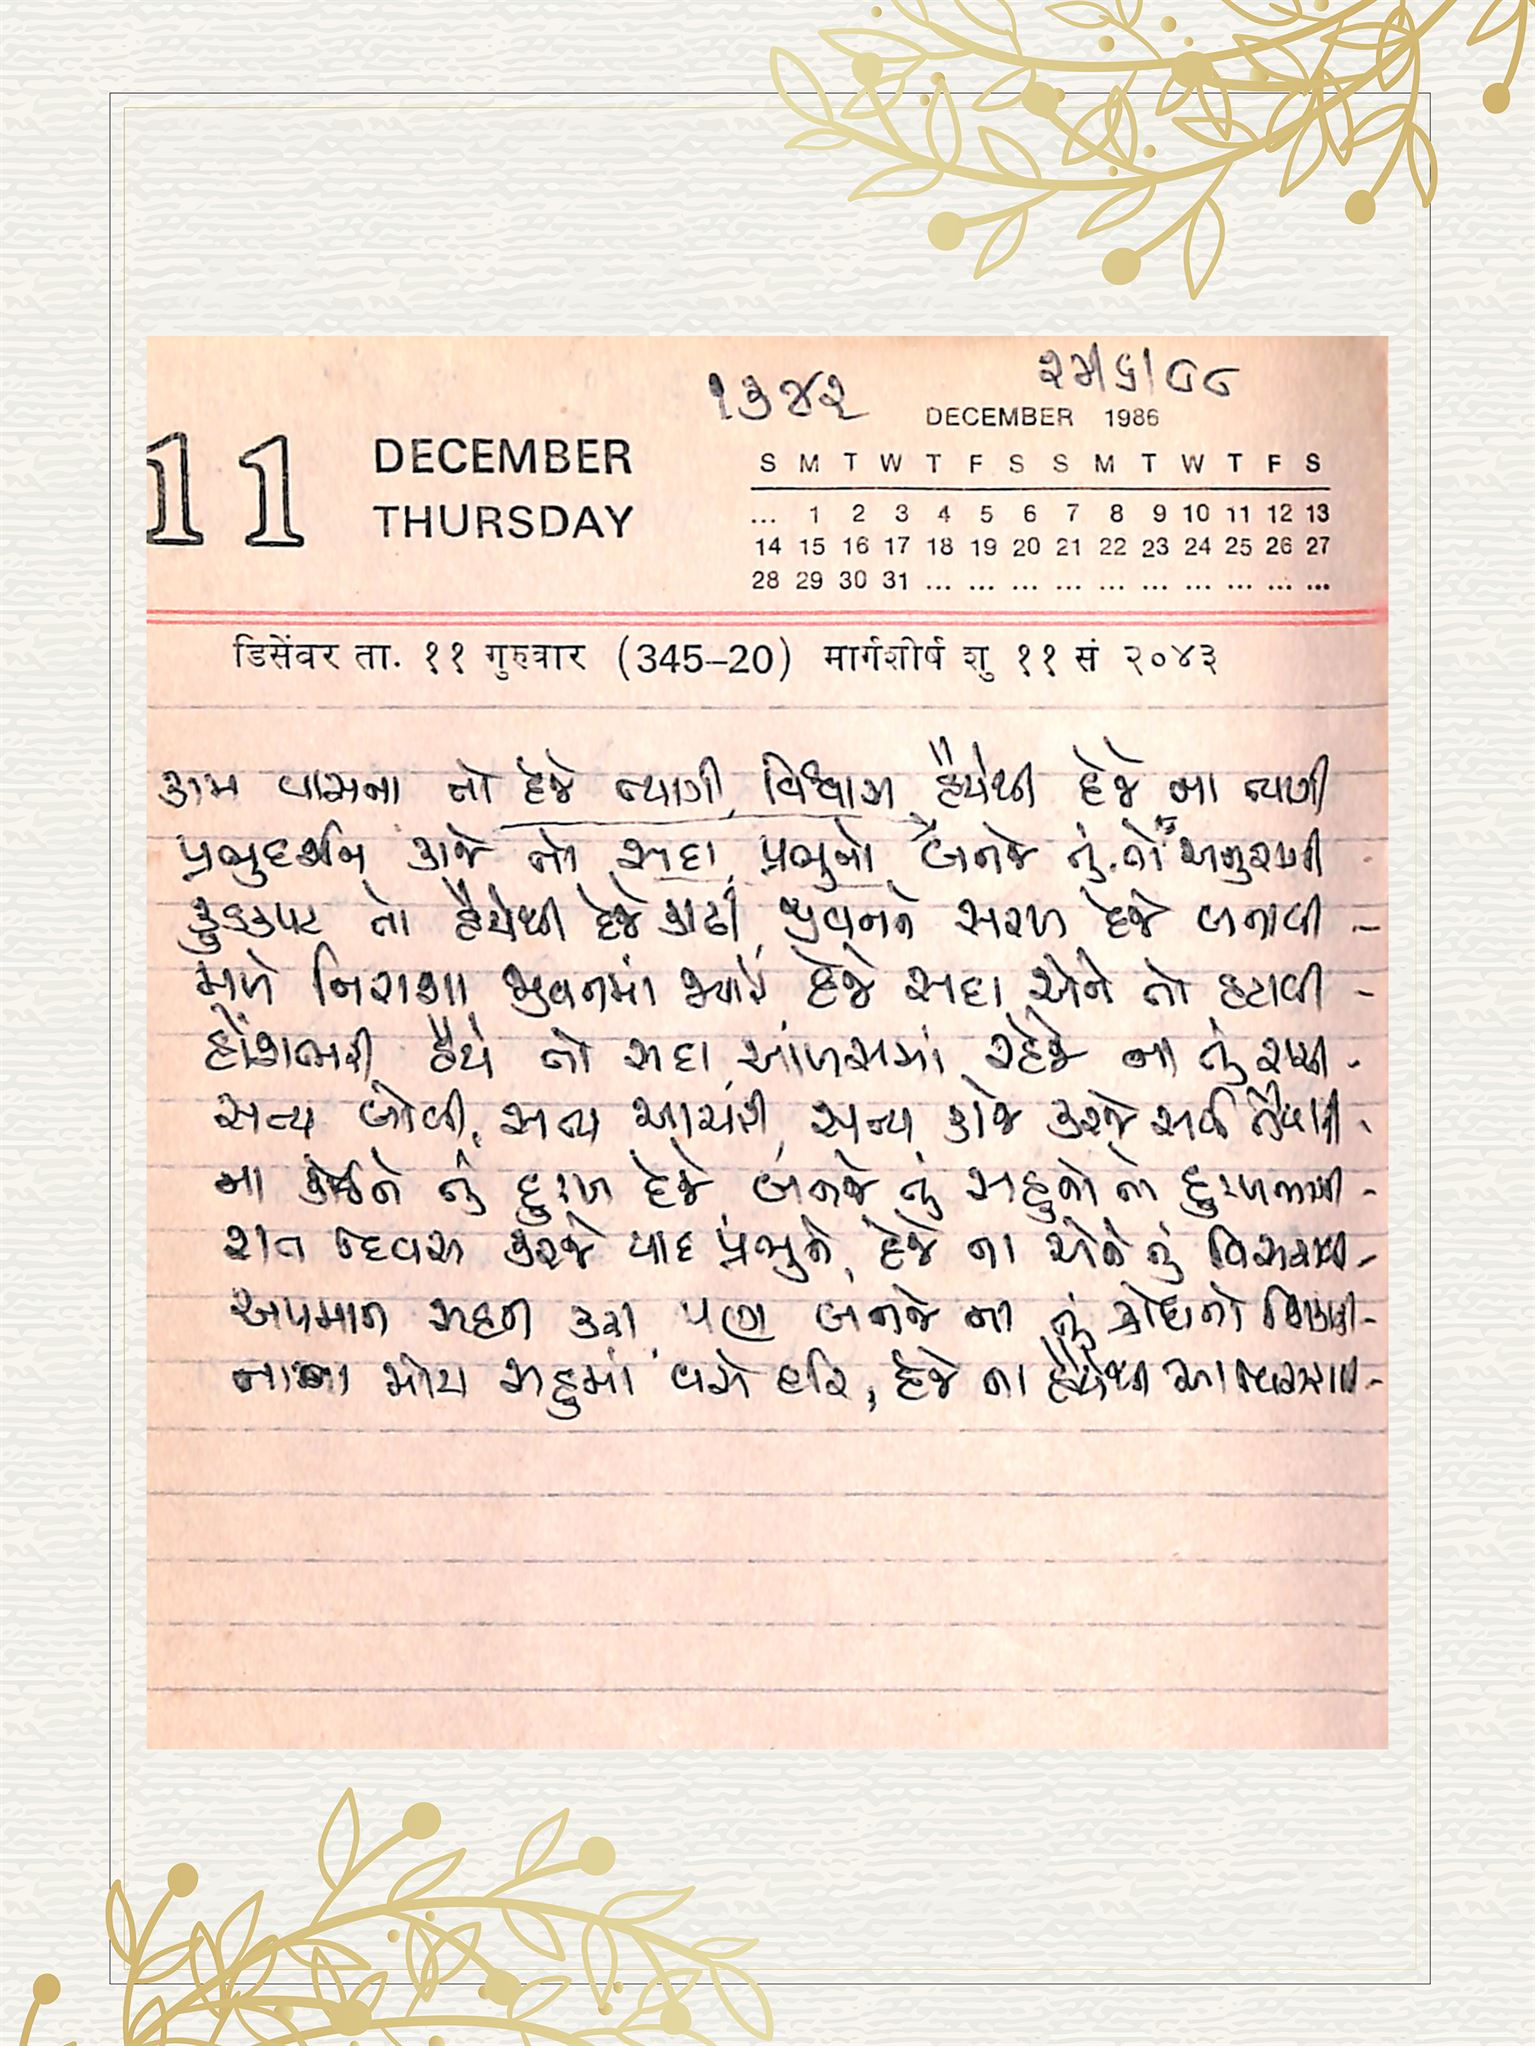 ૧૩૪૨
૨૫|૬|૮૮
DECEMBER 1986
11 DECEMBER
THURSDAY
S M T W T F S S M T W T F S
... 1 2 3 4 5 6 7 8 9 10 11 12 13
14 15 16 17 18 19 20 21 22 23 24 25 26 27
28 29 30 31 ... ... ... ... ... ... ... ... ... ...
डिसेंबर ता. ११ गुरुवार (345–20) मार्गशीर्ष शु ११ सं २०४३
કામ વાસના તો દેજે ત્યાગી, વિશ્વાસ હૈયેથી દેજે ના ત્યાગી
પ્રભુદર્શન કાજે તો સદા, પ્રભુનો બનજે તું તો અનુરાગી
કુડકપટ તો હૈયેથી દેજે કાઢી, જીવનને સરળ દેજે બનાવી -
મળે નિરાશા જીવનમાં જ્યારે દેજે સદા એને તો હટાવી -
હોંશભરી હૈયે તો સદા, આળસમાં રહેજે ના તું રાચી -
સત્ય બોલી, સત્ય આચરી, સત્ય કાજે કરજે સર્વ તૈયારી -
ના કોઈને તું દુઃખ દેજે, બનજે તું સહુનો તો દુઃખભાગી -
રાત દિવસ કરજે યાદ પ્રભુને, દેજે ના એને તું વિસરાવી -
અપમાન સહન કરી પણ બનજે ના તું ક્રોધનો
નાના મોટા સહુમાં વસે હરિ, દેજે ના હૈયેથી આ